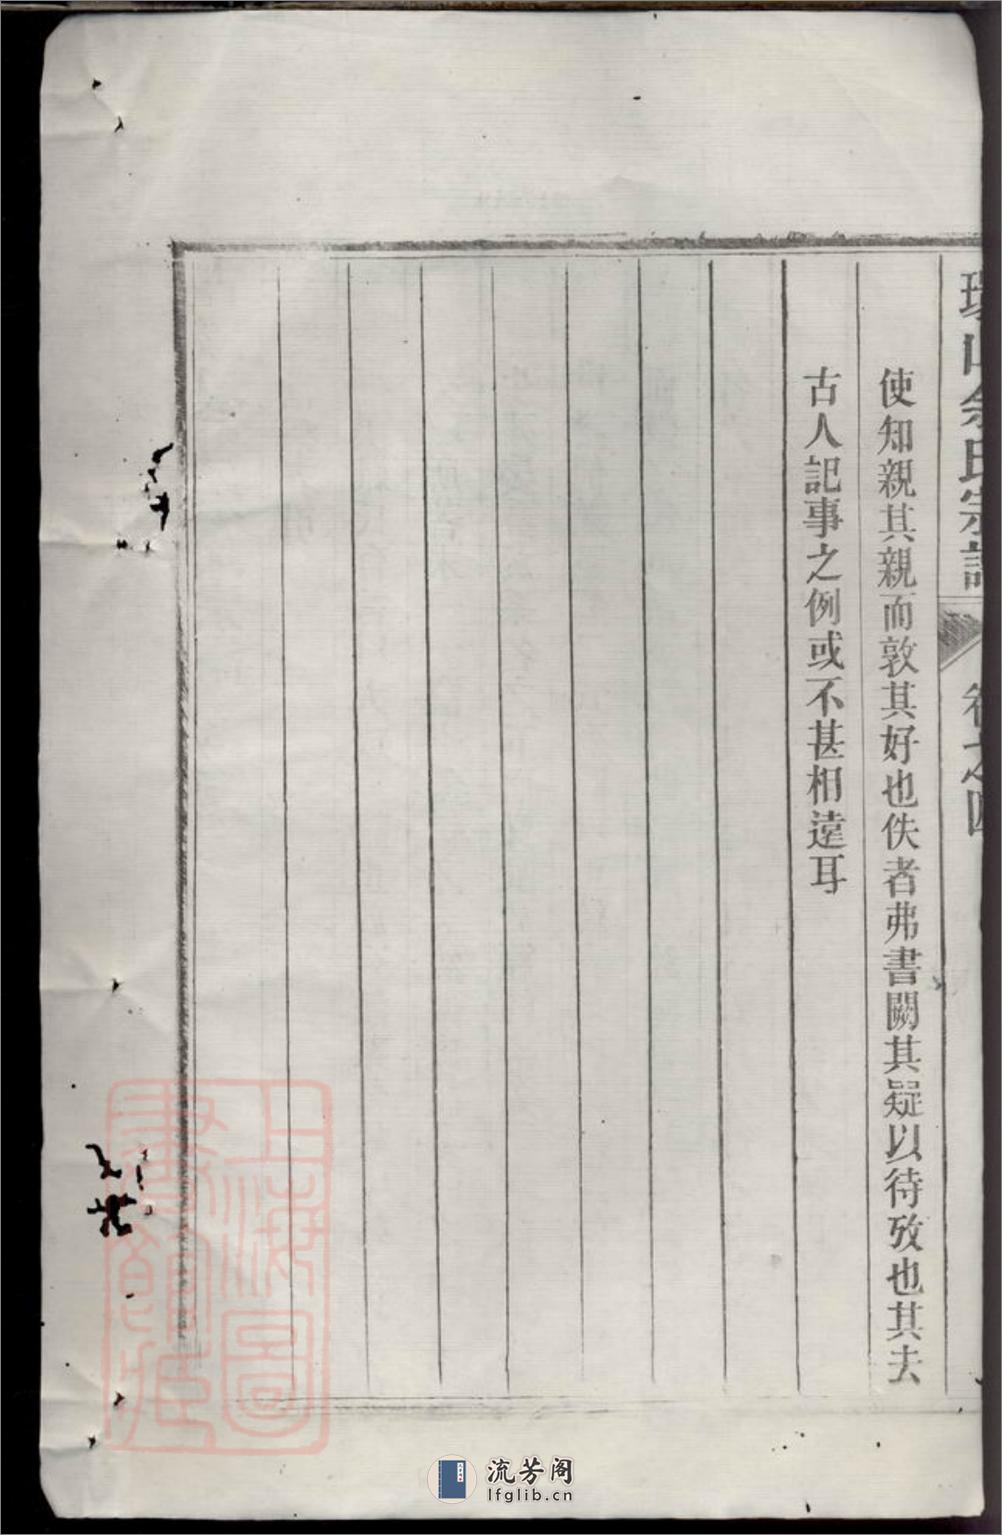 余氏宗譜
卷之四
使知親其親而敦其好也佚者弗書闕其疑以待攷也其去
古人記事之例或不甚相遠耳
上海圖書館藏
流芳阁
lfglib.cn